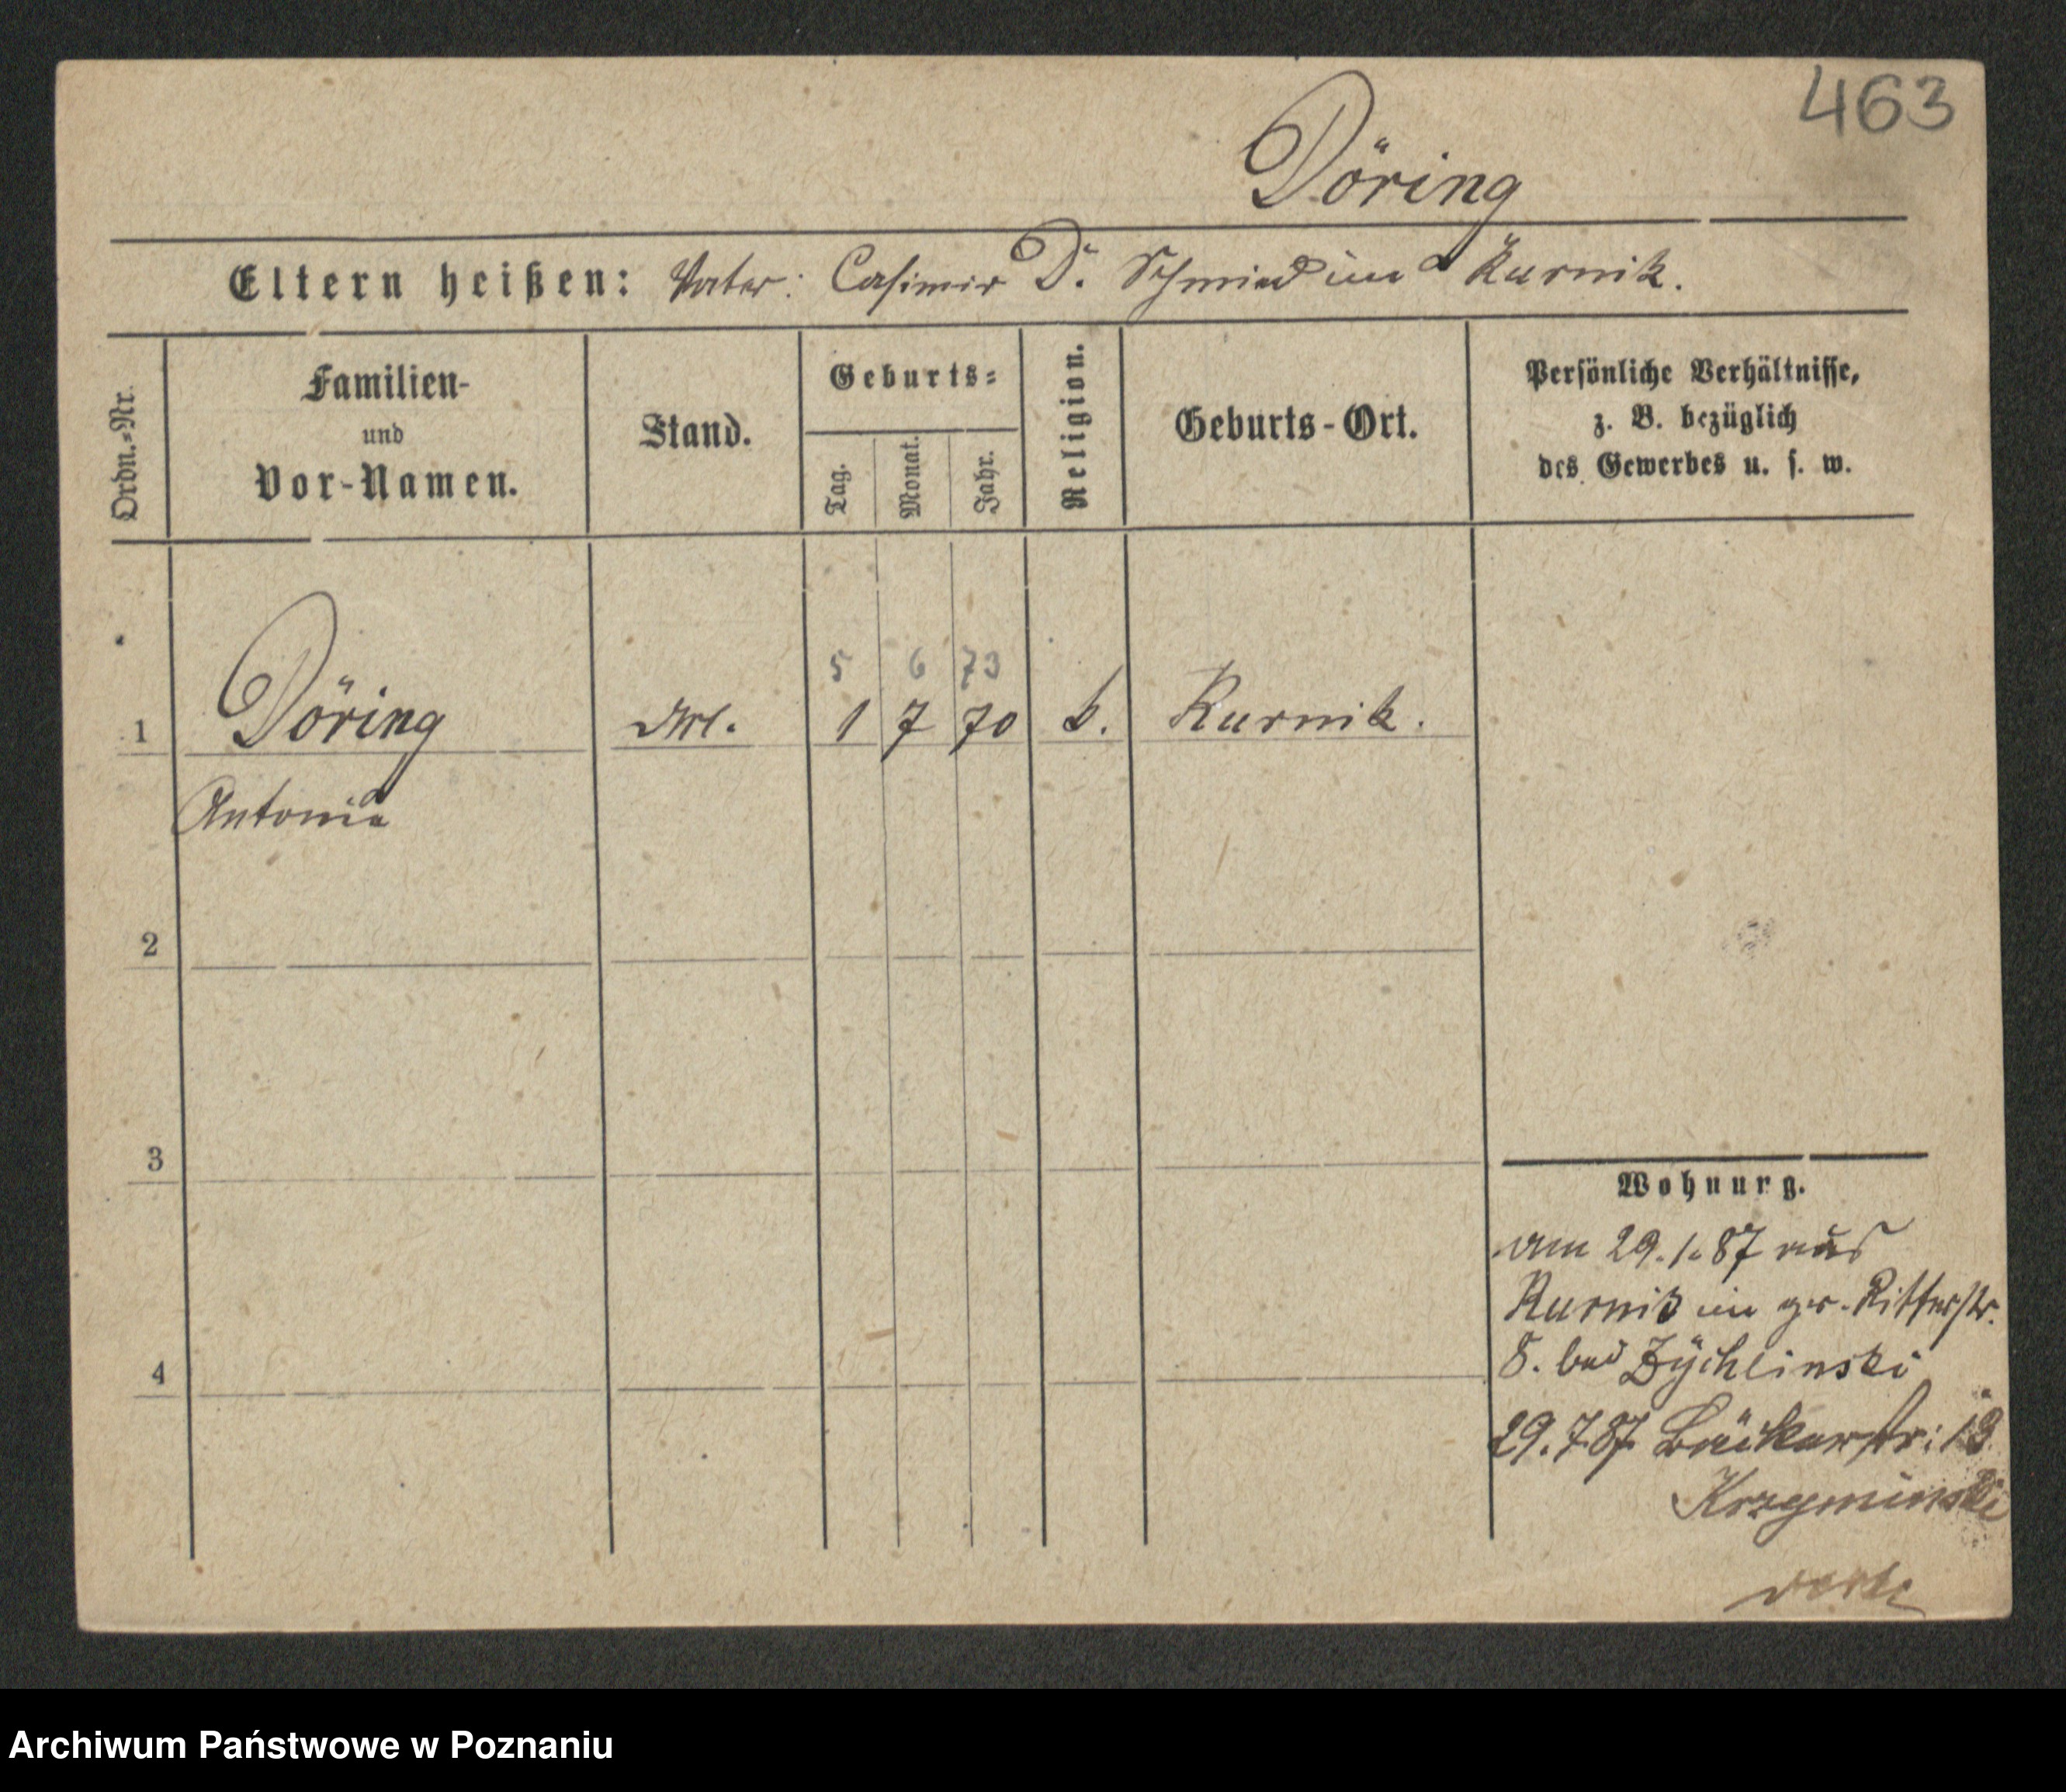 463
Döring
Eltern heißen: Vater: Casimir D. Schmied in Kurnik.
Ordn.=Nr.
Familien-
und
Vor-Namen.
Stand.
Geburts=
Tag.
Monat.
Jahr.
Religion.
Geburts-Ort.
Persönliche Verhältnisse,
z. B. bezüglich
des Gewerbes u. s. w.
5 6 73
1 Döring 1 7 70 k. Kurnik.
Antonia
2
3
4
Wohnurg.
am 29.1.87 aus
Kurnik in gr. Ritterstr.
8. bei Zÿchlinski
29.7.87 Bäckerstr: 13
Krzyminski
Archiwum Państwowe w Poznaniu